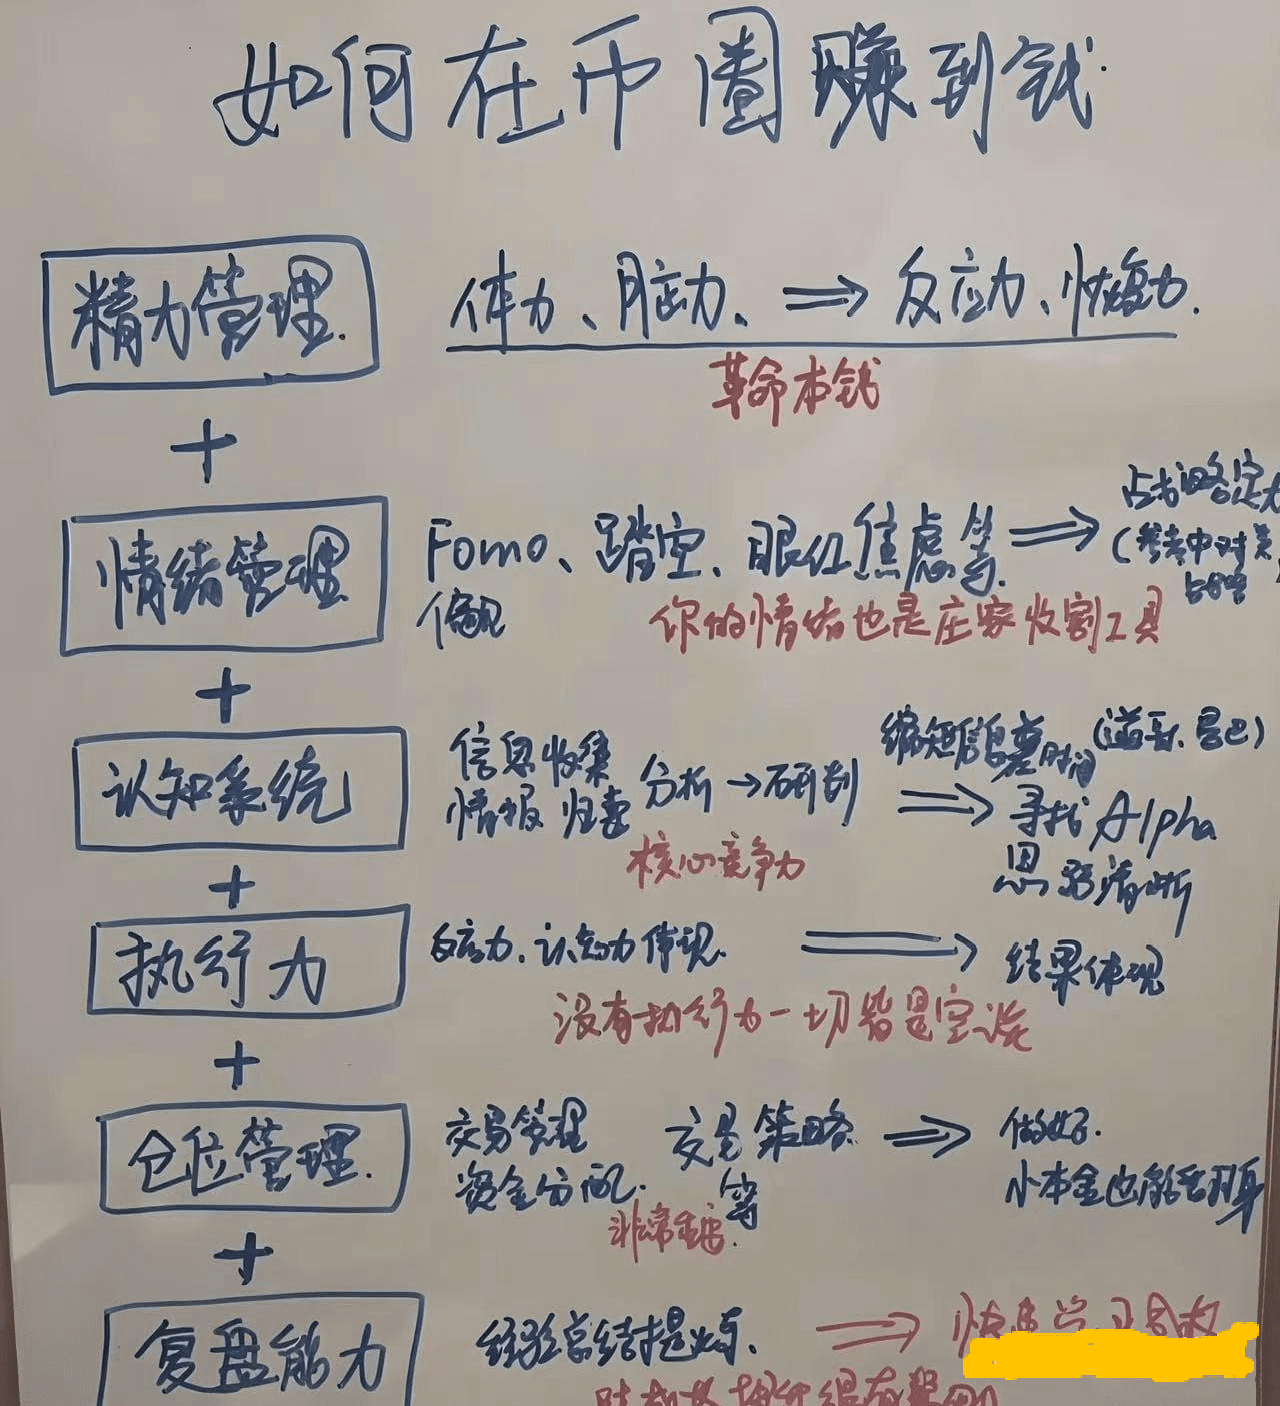 如何在币圈赚到钱
精力管理
体力、脑力、⇒ 反应力、恢复力
革命本钱
+
情绪管理
Fomo、踏空、眼红焦虑等 ⇒
占
(参考中对
偏见
你的情绪也是庄家收割工具
+
认知系统
信息收集
情报归
分析→研判 ⇒
缩短信息差时间
寻找 Alpha
思路清晰
核心竞争力
+
执行力
反应力、认知力体现 ⇒ 结果体现
没有执行力一切皆是空谈
+
仓位管理
交易管理
资金分配
交易策略
等
⇒ 做好
小本金也能翻身
非常重要
+
复盘能力
经验总结提炼 ⇒ 快速学习